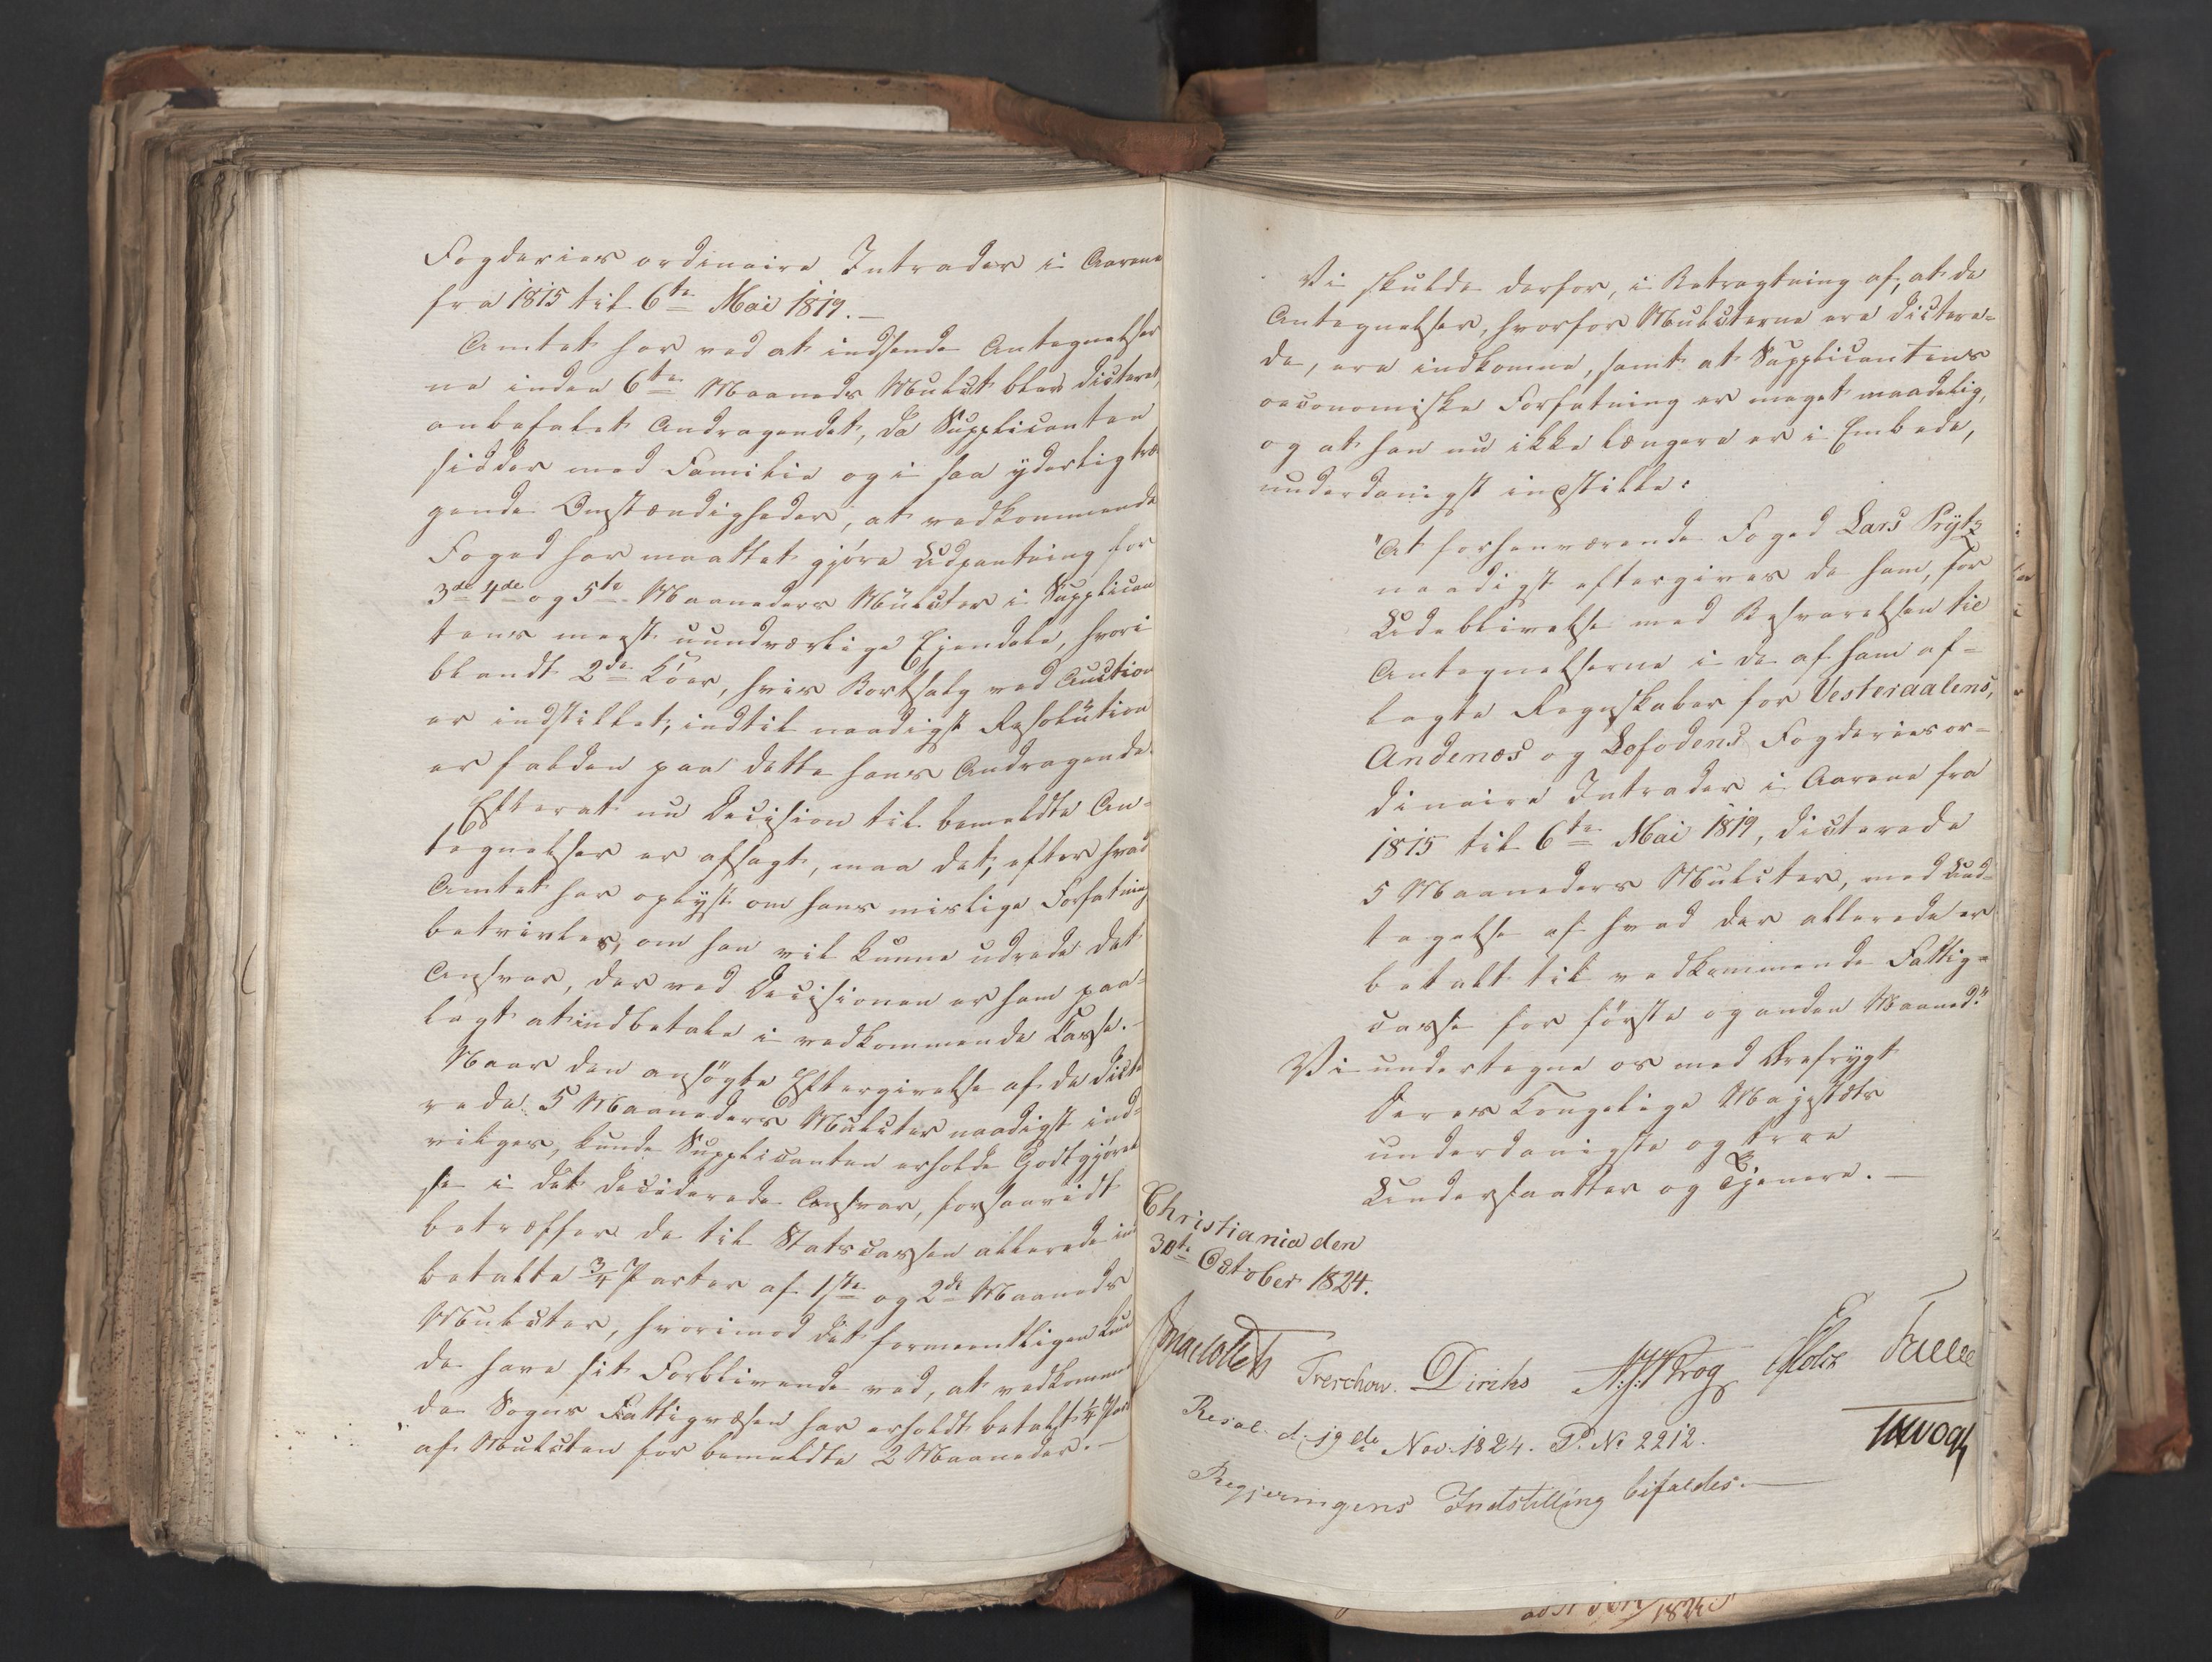 Fogderies ordinaire Intrader i Aarene
fra 1815 til 6te Mai 1819.-
Amtet har ved at indsende Antegnelser
ne inden 6te Maaneds Mulct blev dicteret,
anbefalet Andragendet, da Supplicanten
sidder med Familie og i saa yderlig træ
gende Omstændigheder, at vedkommende
Foged har maattet gjøre Udpantning for
3de 4de og 5te Maaneders Mulcter i Supplican
tens meest uundværlige Ejendele, hvori
blandt 2de Køer, hvis Bortsalg ved Auction
er indstillet, indtil naadigst Resolution
er falden paa dette hans Andragende.
Efterat nu Decision til bemeldte An-
tegnelser er afsagt, maa det, efter hvad
Amtet har oplyst om hans mislige Forfatning
betvivles, om han vil kunne udrede det
Ansvar, der ved Decisionen er ham paa-
lagt at indbetale i vedkommende Casse.-
Naar den ansøgte Eftergivelse af de dicte
rede 5 Maaneders Mulcter naadigst ind-
vilges, kunde Supplicanten erholde Godtgjørel
se i det deciderede Ansvar, forsaavidt
betræffer de til Statscassen allerede ind
betalte 3/4 Parter af 1ste og 2de Maaneds
Mulcter, hvorimod det formeentligen kun
de have sit Forblivende ved, at vedkommen
de Sogns Fattigvæsen har erholdt betalt 1/4 Part
af Mulcten for bemeldte 2 Maaneder.-
Vi skulde derfor, i Betragtning af, at de
Antegnelser, hvorfor Mulcterne ere dictere-
de, ere indkomne, samt at Supplicantens
oeconomiske Forfatning er meget maadelig,
og at han nu ikke længere er i Embede,
underdanigst indstille:
"At forhenværende Foged Lars Prÿtz
naadigst eftergives de ham, for
Udeblivelse med Besvarelsen til
Antegnelserne i de af ham af-
lagte Regnskaber for Vesteraalens,
Andenæs og Lofodens Fogderies or-
dinaire Intrader i Aarene fra
1815 til 6te Mai 1819, dicterede
5 Maaneders Mulcter, med Und-
tagelse af hvad der allerede er
betalt til vedkommende Fattig-
casse for første og anden Maaned."
Vi undertegne os med Ærefrygt
Deres Kongelige Majestæts
underdanigste og troe
Undersaatter og Tjenere.-
Christiania den
30te October 1824.
Treschow. Diriks Krog Motz Falsen
Resol. d. 19de Nov. 1824. P. No 2212.
Vogt
Regjeringens Indstilling bifaldes.-